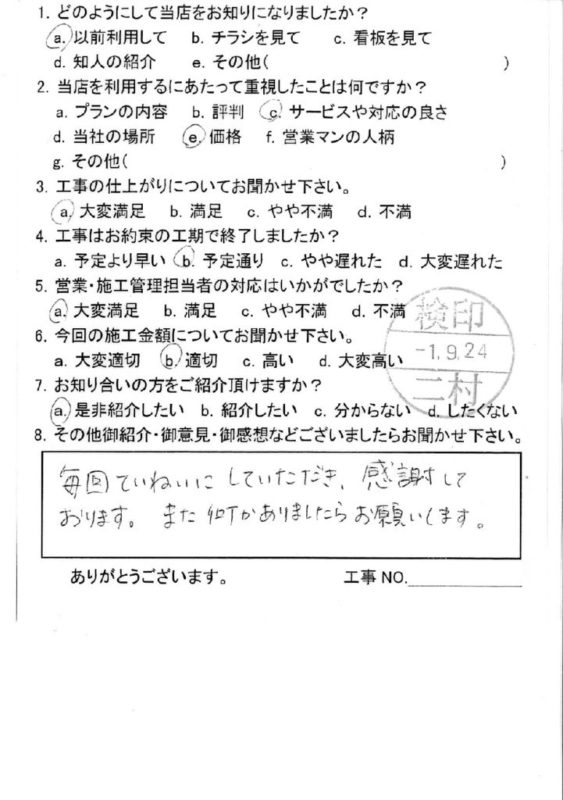 1. どのようにして当店をお知りになりましたか?
a. 以前利用して b. チラシを見て c. 看板を見て
d. 知人の紹介 e. その他( )
2. 当店を利用するにあたって重視したことは何ですか?
a. プランの内容 b. 評判 c. サービスや対応の良さ
d. 当社の場所 e. 価格 f. 営業マンの人柄
g. その他( )
3. 工事の仕上がりについてお聞かせ下さい。
a. 大変満足 b. 満足 c. やや不満 d. 不満
4. 工事はお約束の工期で終了しましたか?
a. 予定より早い b. 予定通り c. やや遅れた d. 大変遅れた
5. 営業・施工管理担当者の対応はいかがでしたか?
a. 大変満足 b. 満足 c. やや不満 d. 不満
検印
-1.9.24
二村
6. 今回の施工金額についてお聞かせ下さい。
a. 大変適切 b. 適切 c. 高い d. 大変高い
7. お知り合いの方をご紹介頂けますか?
a. 是非紹介したい b. 紹介したい c. 分からない d. したくない
8. その他御紹介・御意見・御感想などございましたらお聞かせ下さい。
毎回ていねいにしていただき、感謝して
おります。また何かありましたらお願いします。
ありがとうございます。 工事 NO.